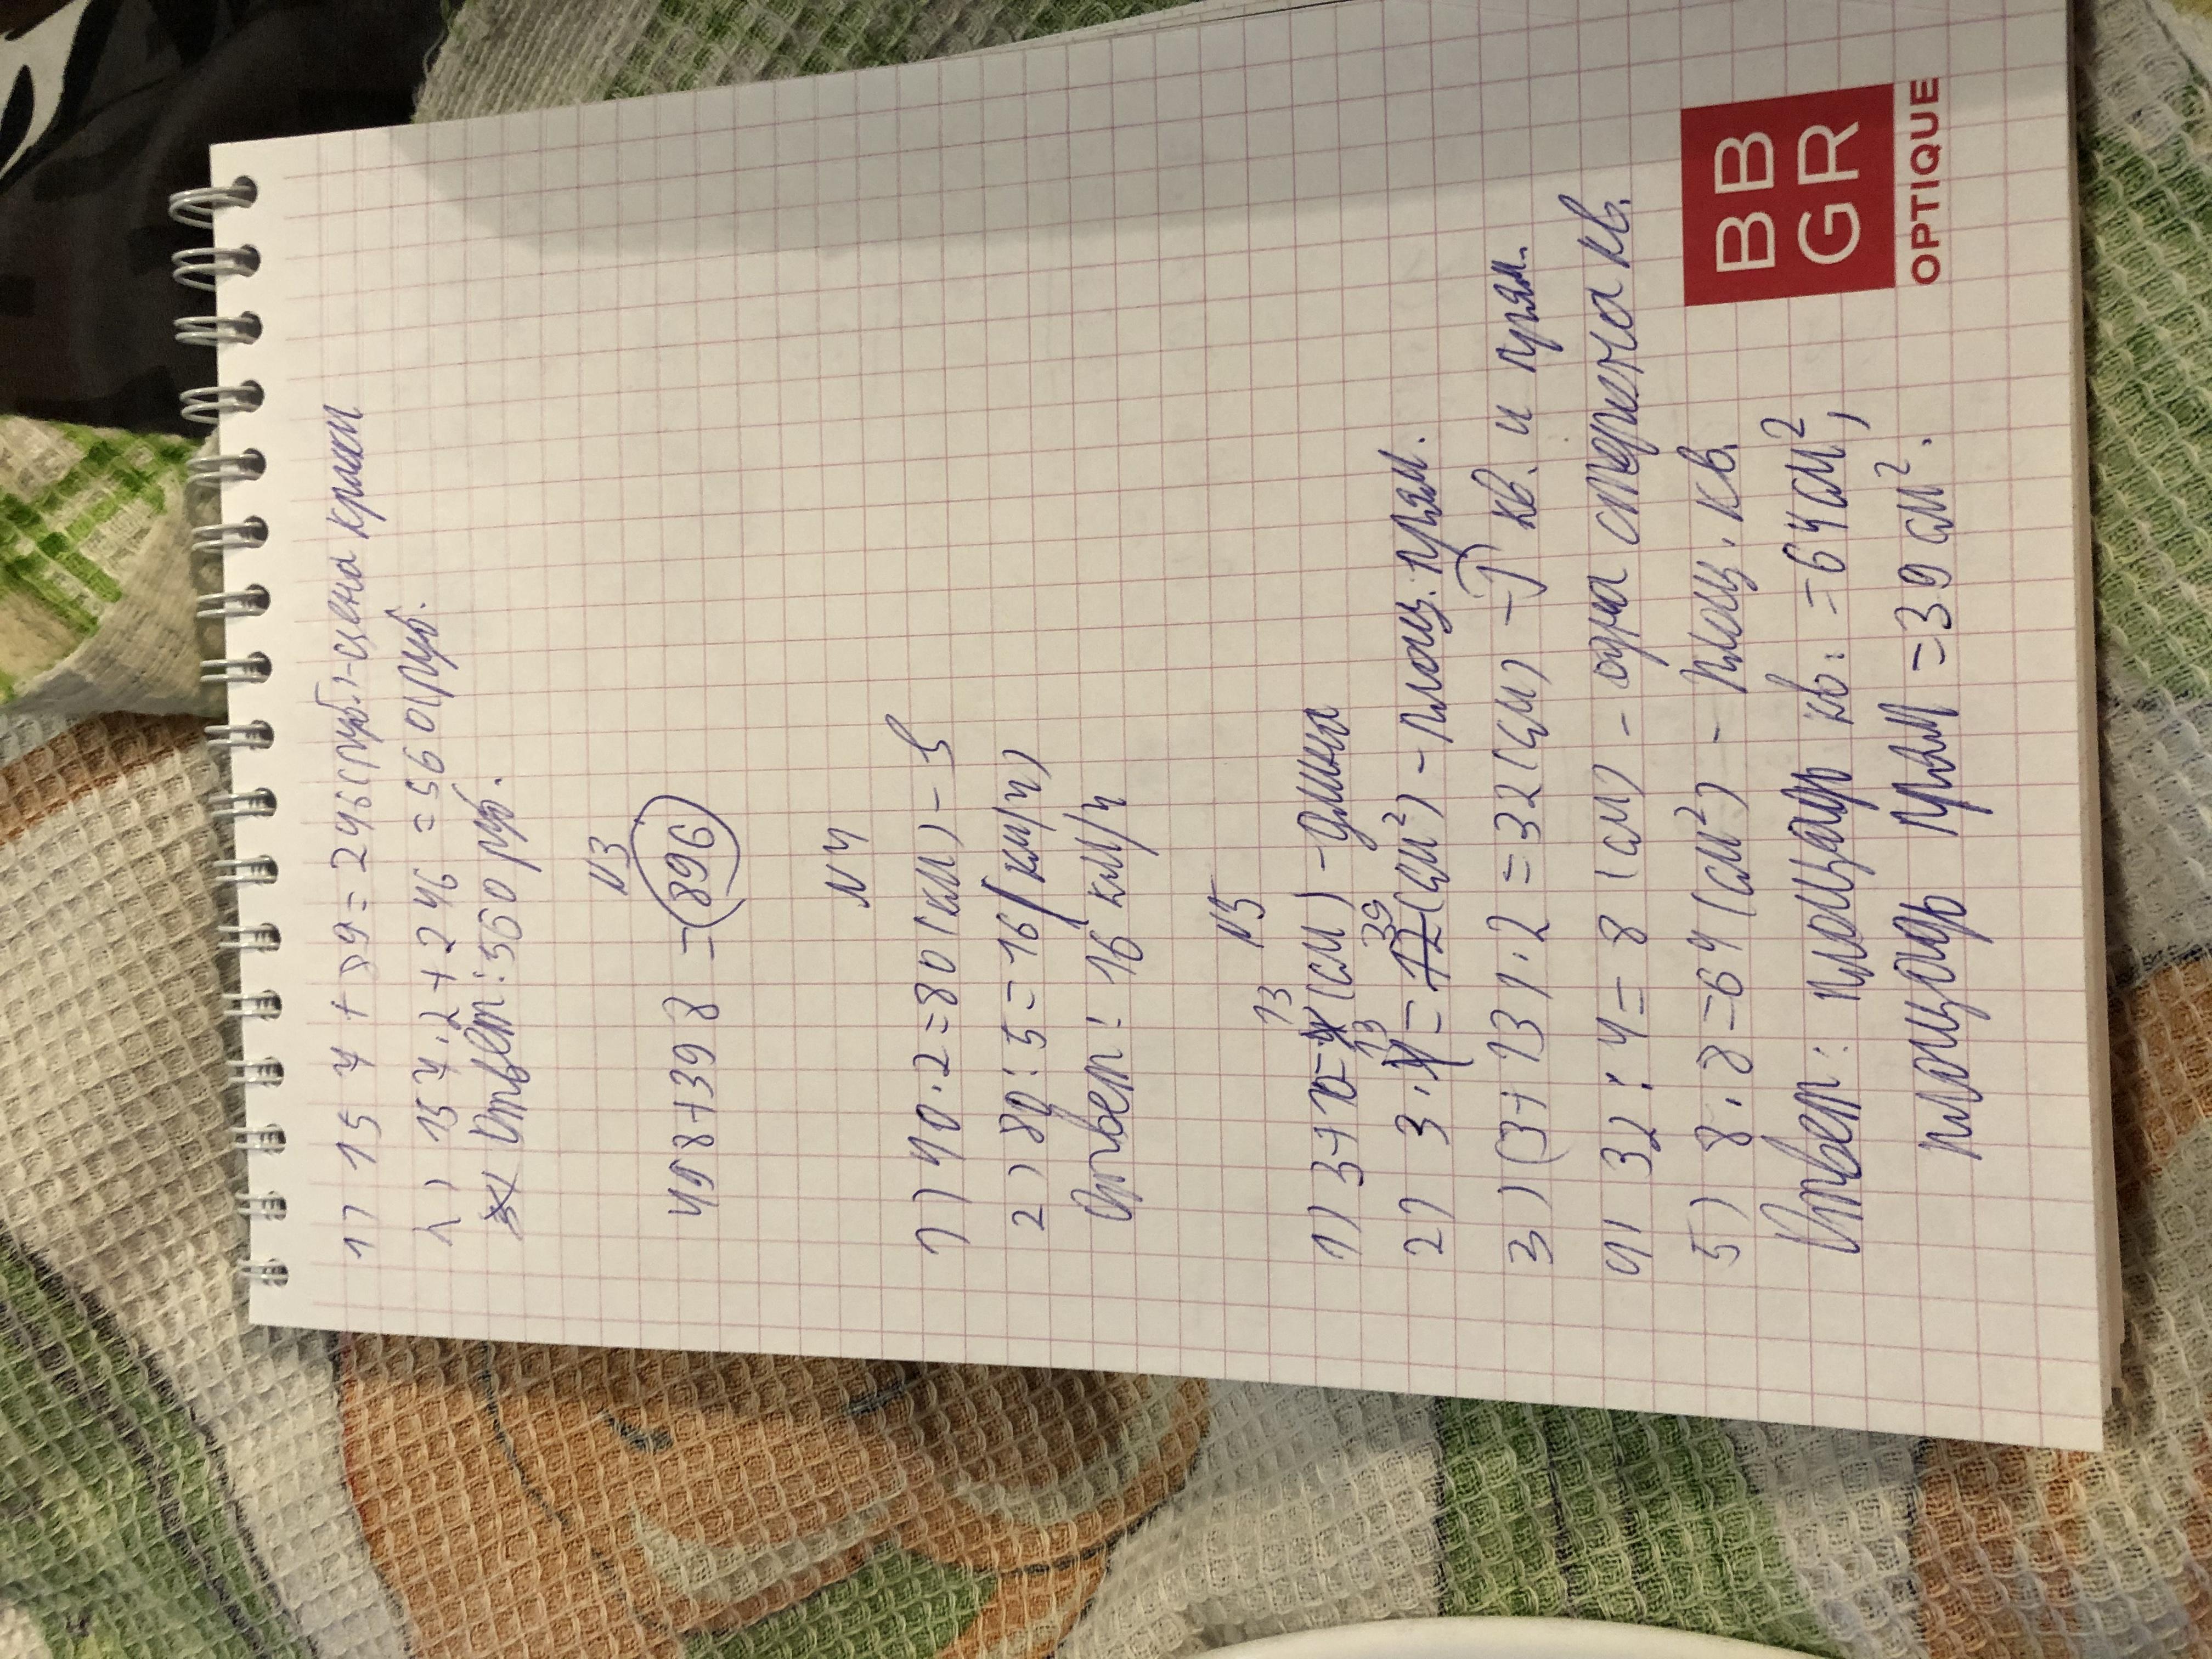 1) 157+89=246(руб.)-цена краски
2) 157·2+246=560(руб.
Ответ: 560 руб.
N3
498+398=896
N4
1) 40·2=80(км)-S
2) 80:5=16(км/ч)
Ответ: 16 км/ч
N5
13
1) 3+10=(см)-длина
13 39
2) 3·=12(см²)-площ. прям.
3) (3+13)·2=32(см)-P кв. и прям.
4) 32:4=8(см)-одна сторона кв.
5) 8·8=64(см²)-площ. кв.
Ответ: площадь кв.=64см²,
площадь прям=39см².
BB
GR
OPTIQUE